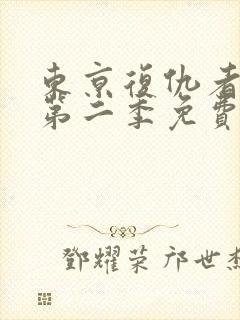 東京復仇者
第二季免費
鄧耀荣 邝世杰